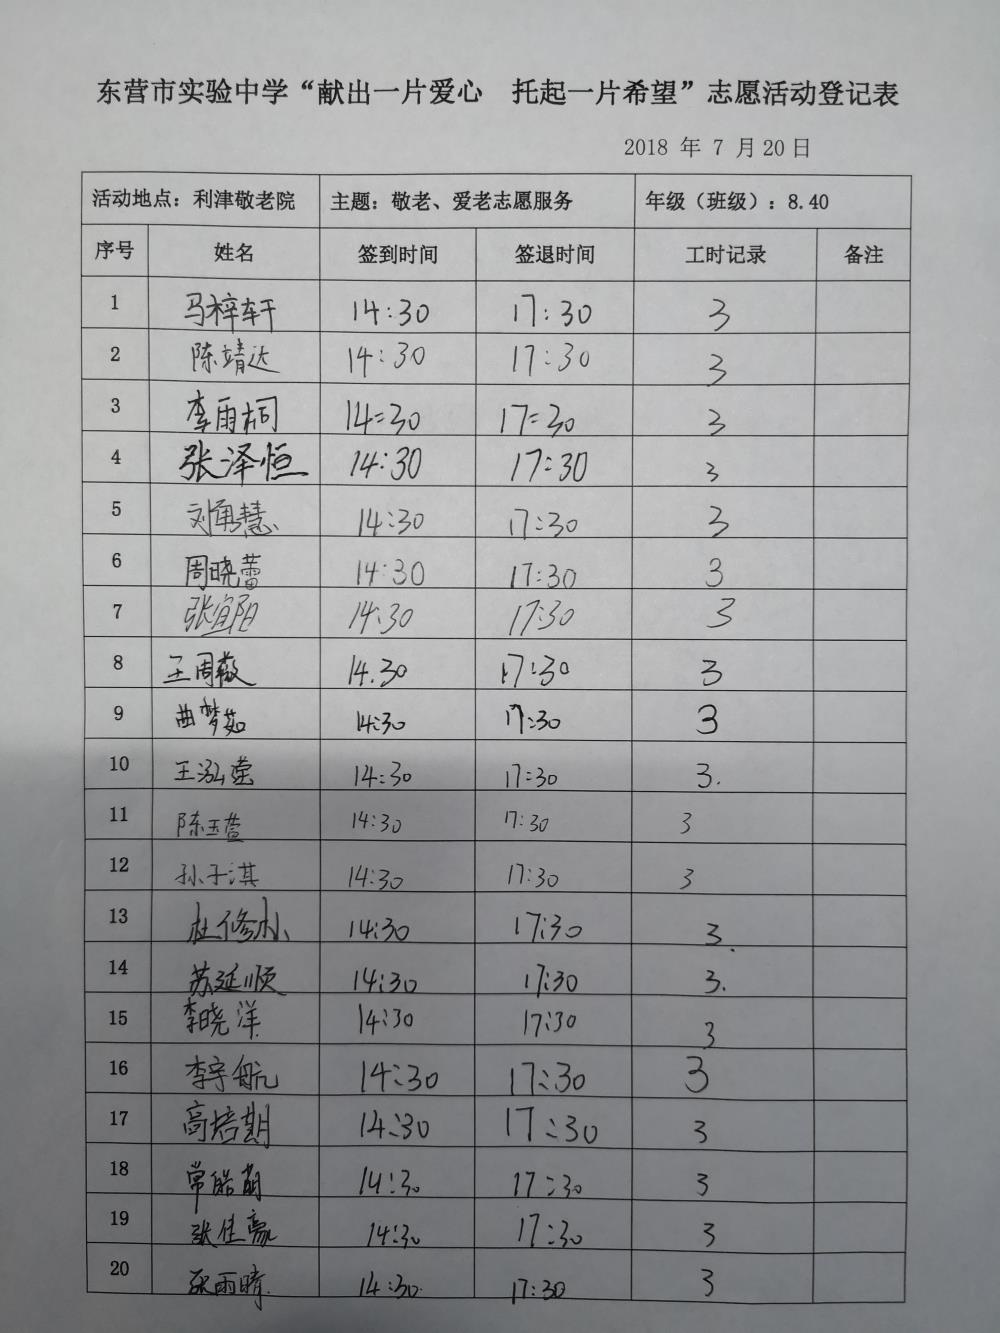 东营市实验中学“献出一片爱心 托起一片希望”志愿活动登记表
2018 年 7 月 20 日
活动地点：利津敬老院 主题：敬老、爱老志愿服务 年级（班级）：8.40
序号 姓名 签到时间 签退时间 工时记录 备注
1 马梓轩 14:30 17:30 3
2 陈靖达 14:30 17:30 3
3 李雨桐 14:30 17:30 3
4 张泽恒 14:30 17:30 3
5 14:30 17:30 3
6 周晓蕾 14:30 17:30 3
7 张宜阳 14:30 17:30 3
8 王周薇 14.30 17:30 3
9 曲梦茹 14:30 17:30 3
10 王泓莹 14:30 17:30 3.
11 陈玉萱 14:30 17:30 3
12 孙子淇 14:30 17:30 3
13 14:30 17:30 3.
14 苏延顺 14:30 17:30 3.
15 李晓洋 14:30 17:30 3
16 李宇航 14:30 17:30 3
17 高培期 14:30 17:30 3
18 14:30 17:30 3
19 张佳豪 14:30 17:30 3
20 张雨晴 14:30 17:30 3